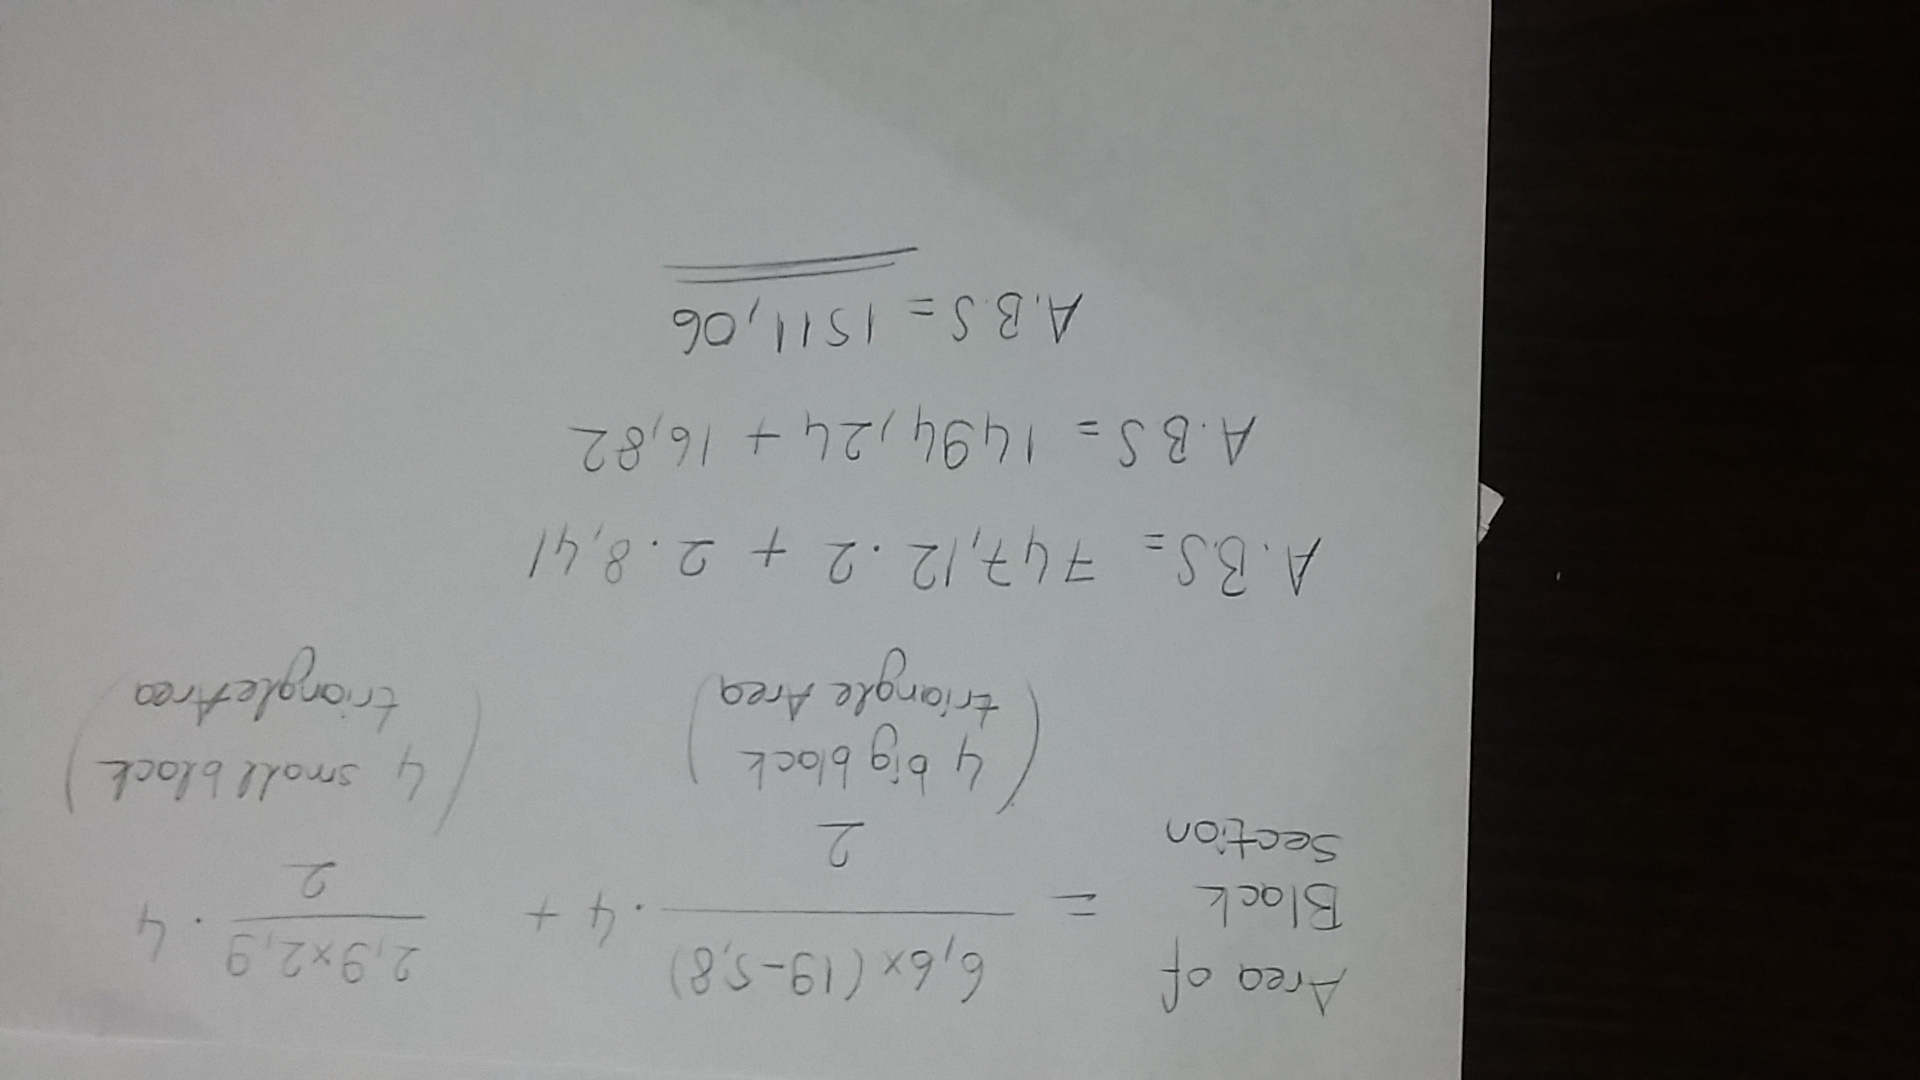 Area of
Black
Section
= 6,6x(19-5,8) / 2 . 4 + 2,9x2,9 / 2 . 4
(4 big black
triangle Area)
(4 small black
triangleArea)
A.B.S = 747,12 . 2 + 2 . 8,41
A.B.S = 1494,24 + 16,82
A.B.S = 1511,06